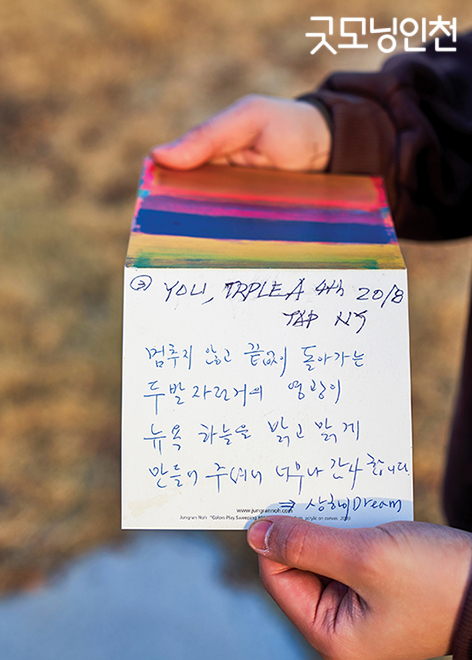 굿모닝인천
③ YOU, TRPLE A 4th 2018
TAP NY
멈추지 않고 끝없이 돌아가는
두발 자전거의 영광이
뉴욕 하늘을 밝고 맑게
만들어 주셔서 너무나 감사합니다
⇒ 상하이Dream
www.jungrannoh.com
Jungran Noh "Colors Play Sweeping acrylic on canvas,